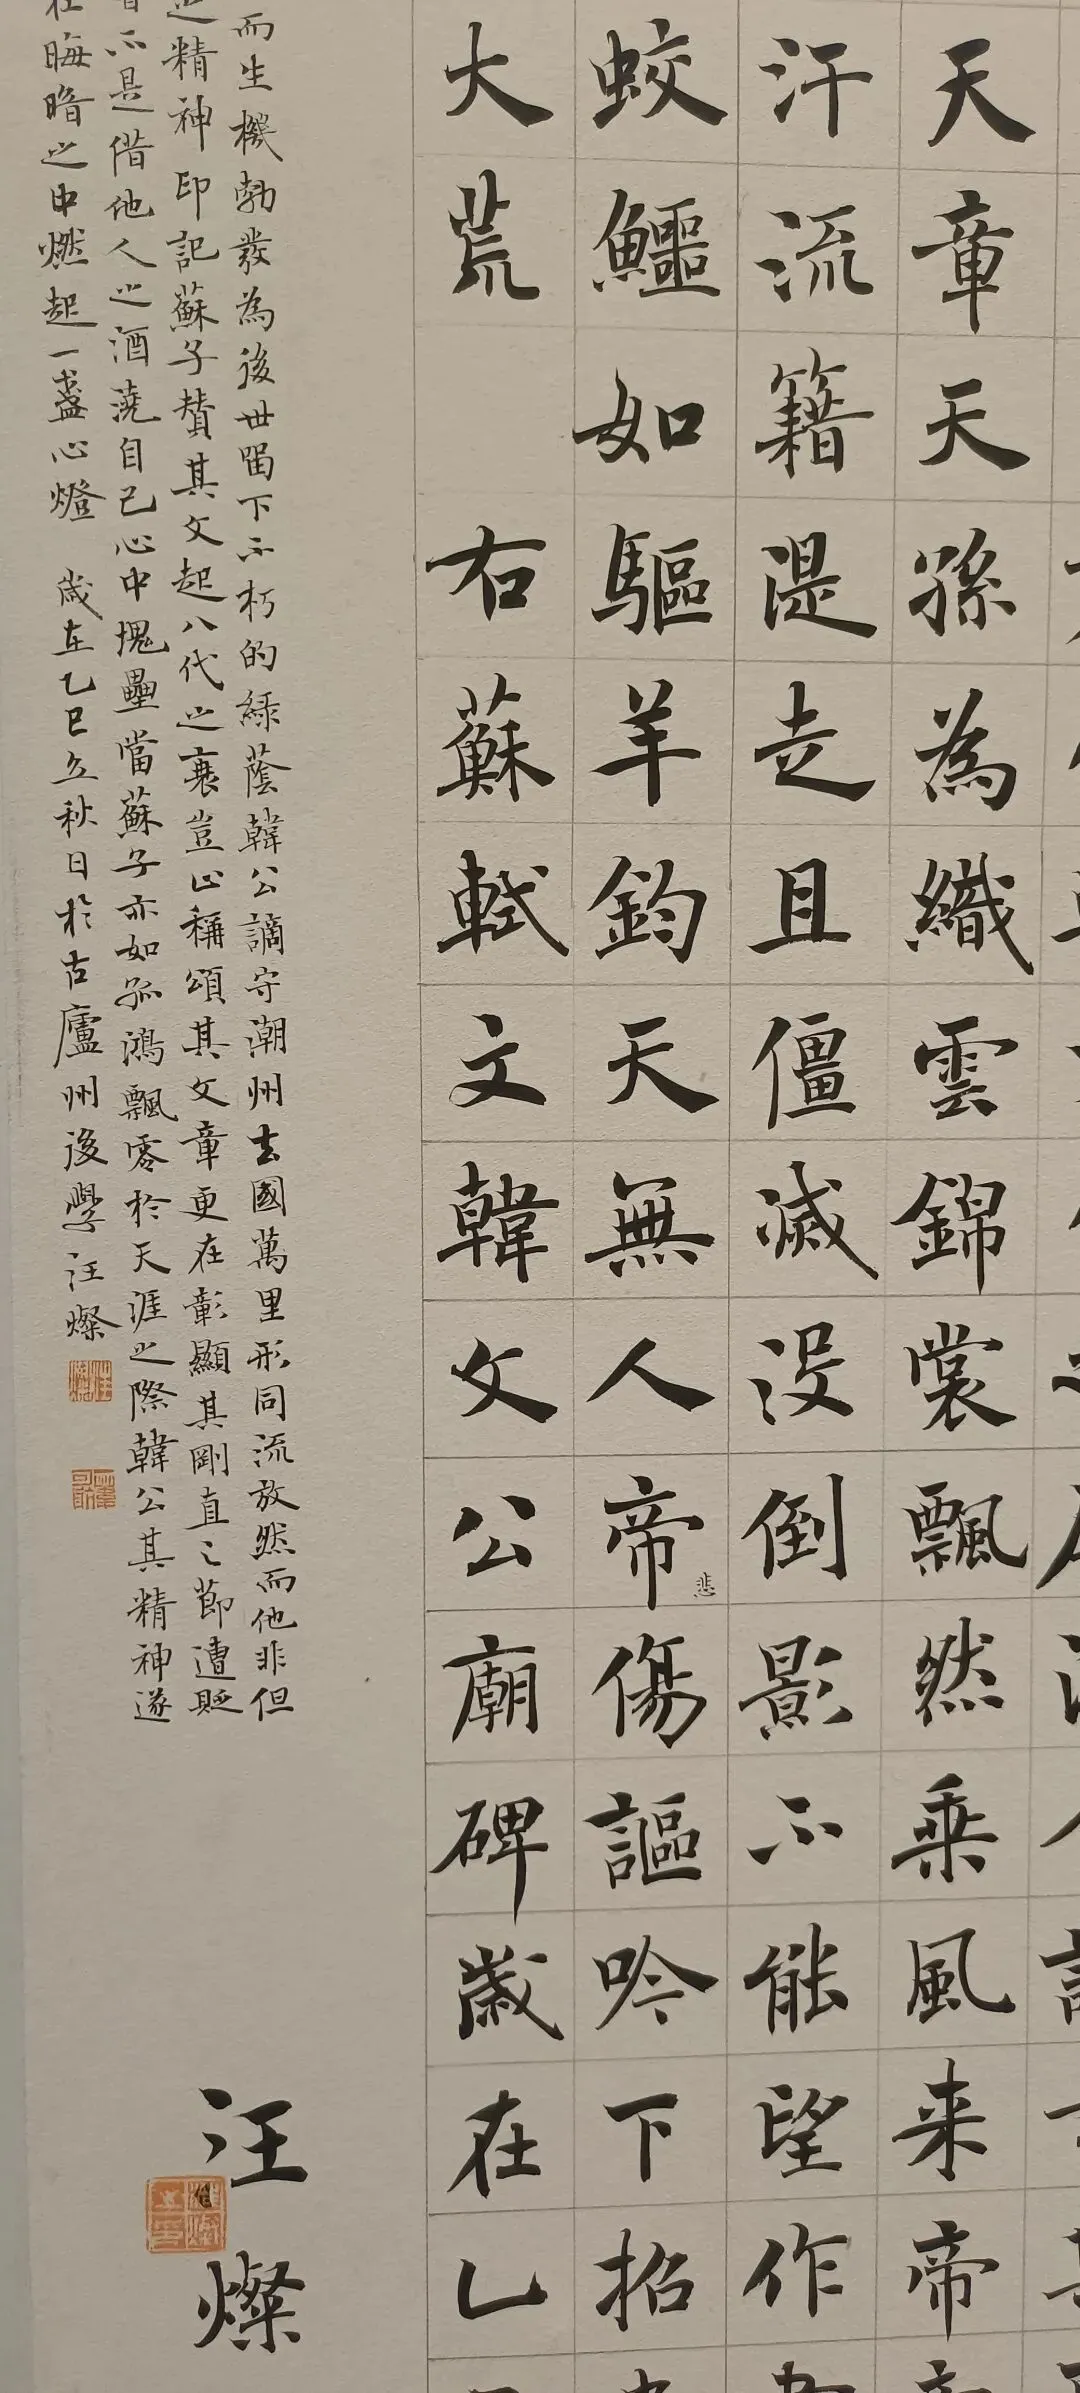 天章天孫為織雲錦裳飄然乘風来帝
汗流籍湜走且僵滅没倒影不能望作
蛟鱷如驅羊鈞天無人帝悲傷謳吟下招
大荒 右蘇軾文韓文公廟碑歲在乙
而生機勃發為後世留下不朽的緑蔭韓公謫守潮州去國萬里形同流放然而他非但
精神印記蘇子贊其文起八代之衰豈止稱頌其文章更在彰顯其剛直之節遭貶
不是借他人之酒澆自己心中塊壘當蘇子亦如孤鴻飄零於天涯之際韓公其精神遂
在晦暗之中燃起一盞心燈 歲在乙巳立秋日於古廬州後學汪燦
汪燦